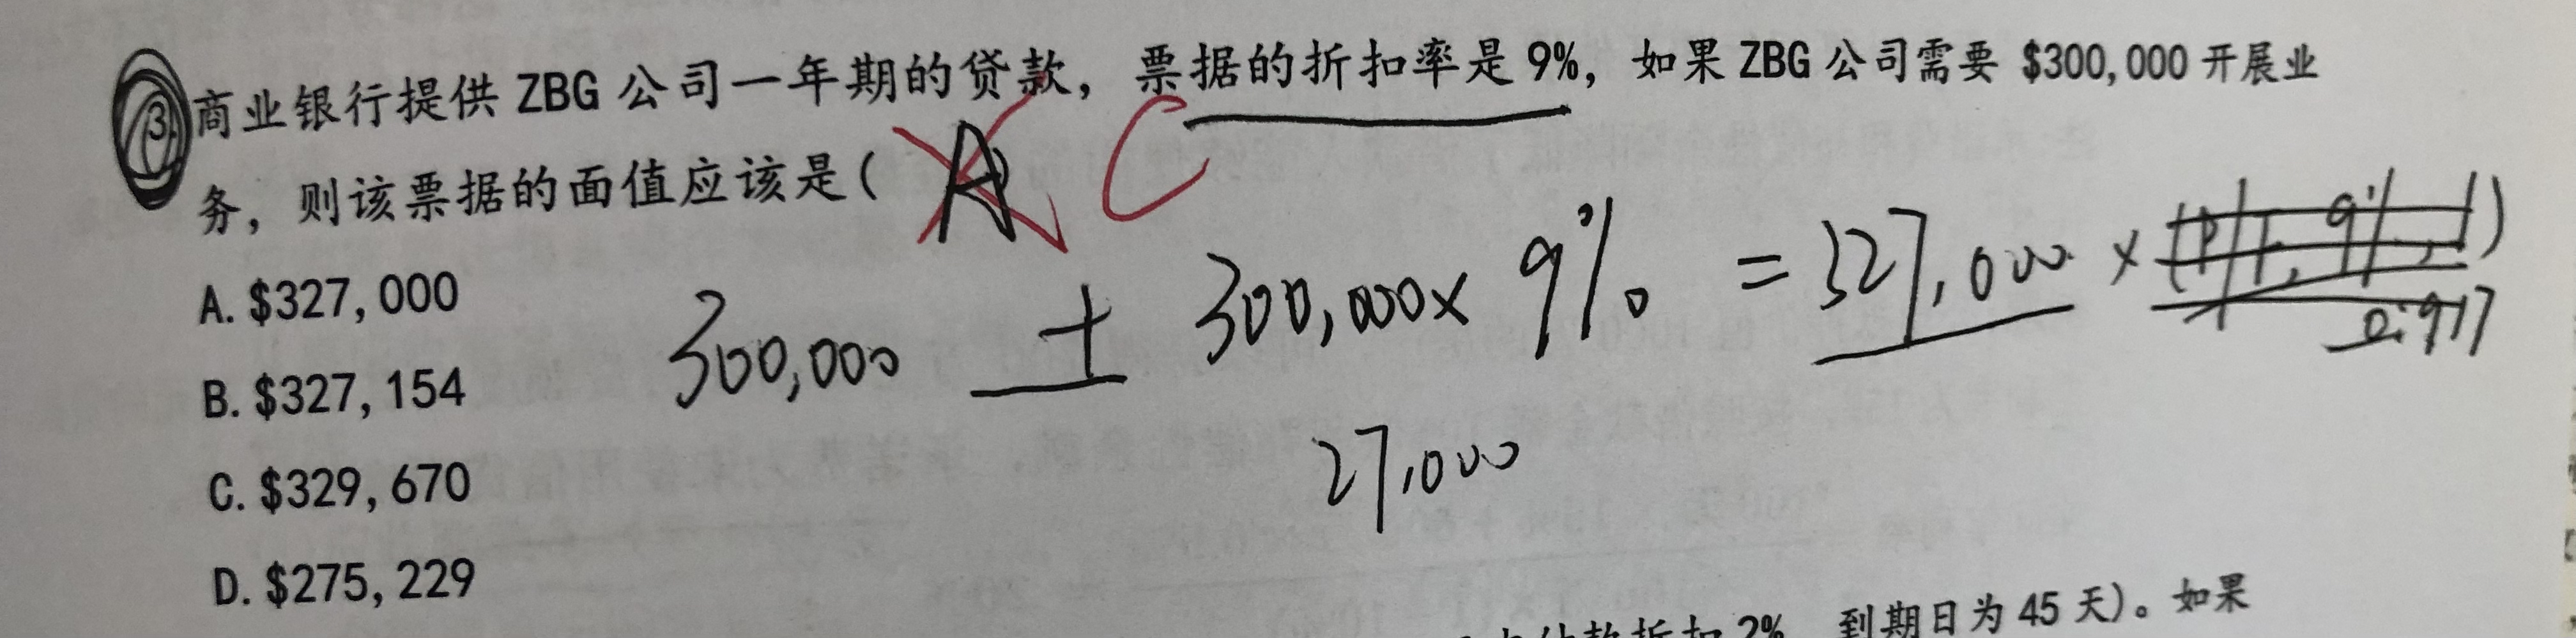 3. 商业银行提供 ZBG 公司一年期的贷款，票据的折扣率是 9%，如果 ZBG 公司需要 $300,000 开展业
务，则该票据的面值应该是( A ) C
A. $327,000
B. $327,154
C. $329,670
D. $275,229
300,000 + 300,000 × 9% = 327,000 × (P/F, 9%, 1)
0.917
27,000
付款折扣 2%，到期日为 45 天)。如果